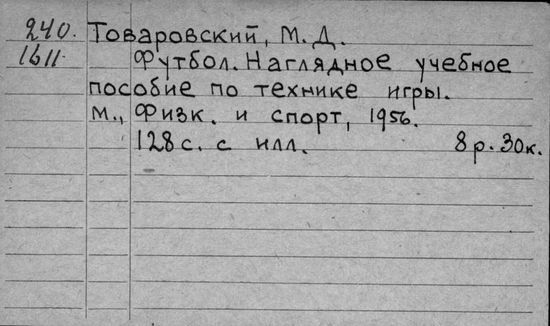 240. Товаровский, М. Д.
1611. Футбол. Наглядное учебное
пособие по технике игры.
М., Физк. и спорт, 1956.
128 с. с илл. 8 р. 30 к.